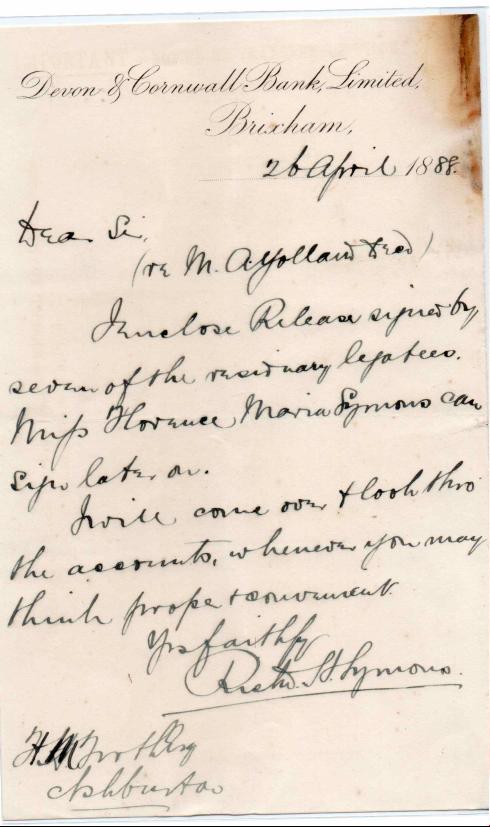 Devon & Cornwall Bank, Limited,
Brixham,
26 April 1888.
Dear Sir,
(re M. A Yolland Decd)
I enclose Release signed by
seven of the residuary legatees.
Miss Florence Maria Symons can
sign later on.
I will come over & look thro
the accounts, whenever you may
think proper & convenient.
Yrs faithfy
Richd. H. Symons.
H M Esq
Ashburton